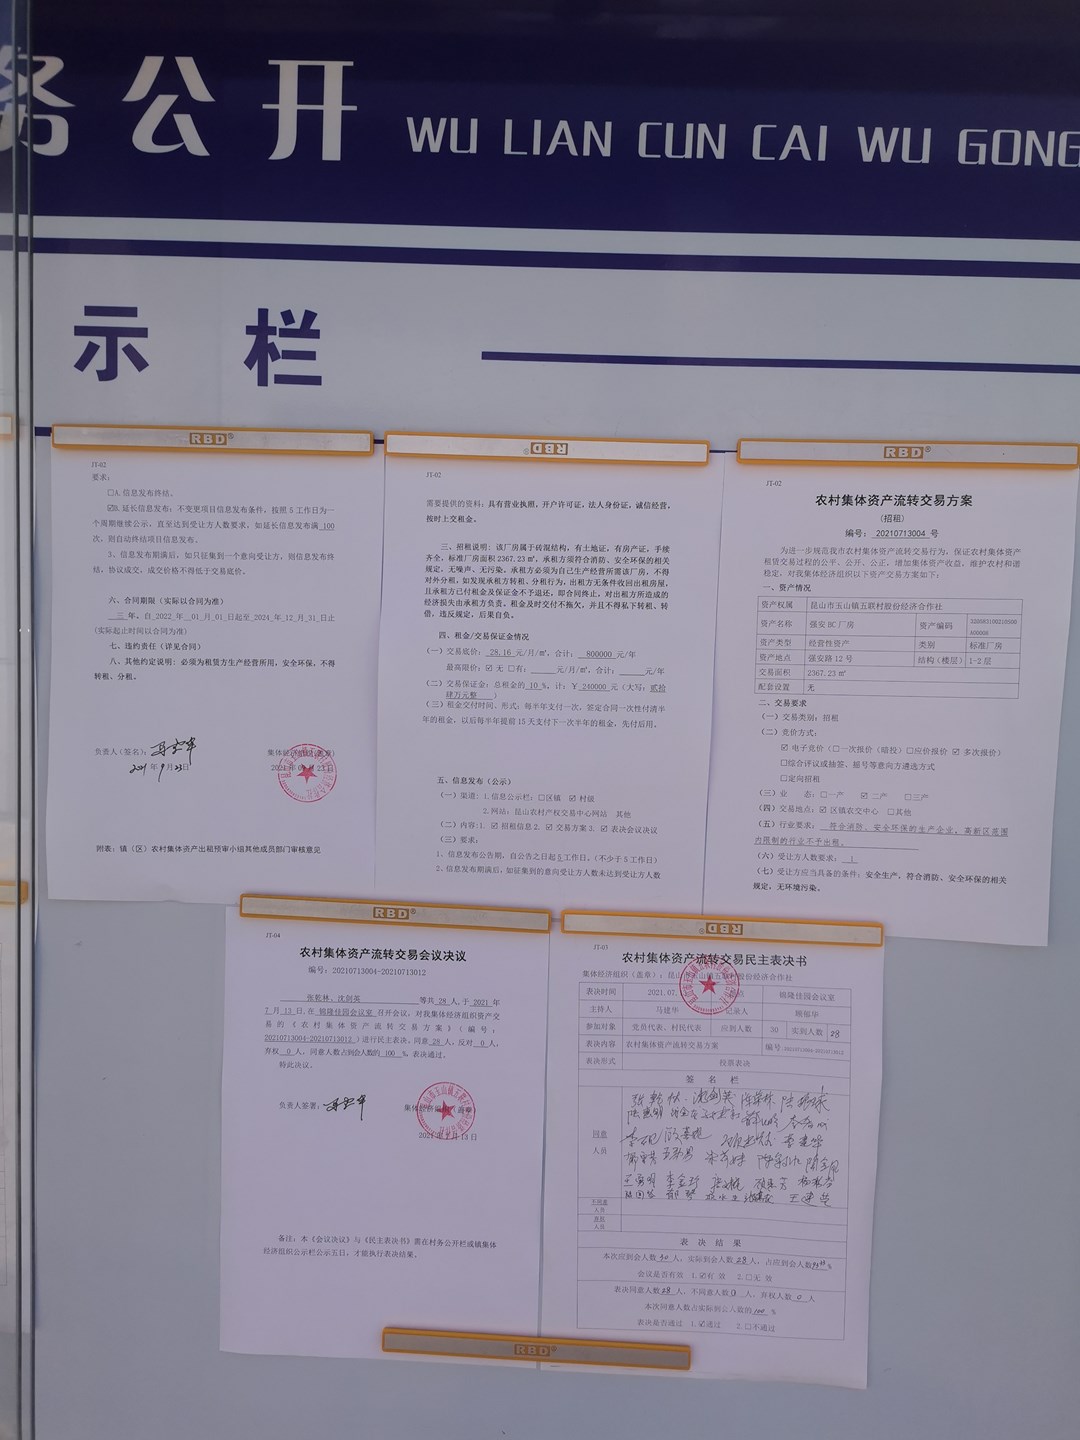 务公开
WU LIAN CUN CAI WU GONG
示 栏
RBD®
JT-02
要求:
☐A.信息发布终结。
☑B.延长信息发布: 不变更项目信息发布条件, 按照 5 工作日为一
个周期继续公示, 直至达到受让方人数要求。如延长信息发布满 100
次, 则自动终结项目信息发布。
3、信息发布期满后, 如只征集到一个意向受让方, 则信息发布终
结, 协议成交, 成交价格不得低于交易底价。
六、合同期限（实际以合同为准）
三 年。自 2022 年 01 月 01 日起至 2024 年 12 月 31 日止
(实际起止时间以合同为准)
七、违约责任（详见合同）
八、其他约定说明: 必须为租赁方生产经营所用, 安全环保, 不得
转租、分租。
负责人（签名）:
集体经济组织(盖章)
2021年9月23日
附表: 镇（区）农村集体资产出租预审小组其他成员部门审核意见
RBD®
JT-02
需要提供的资料: 具有营业执照, 开户许可证, 法人身份证, 诚信经营,
按时上交租金。
三、招租说明: 该厂房属于砖混结构, 有土地证, 有房产证, 手续
齐全, 标准厂房面积 2367.23 ㎡, 承租方须符合消防、安全环保的相关
规定, 无噪声、无污染, 承租方必须为自己生产经营所需该厂房, 不得
对外分租, 如发现承租方转租、分租行为, 出租方无条件收回出租房屋,
且承租方已付租金及保证金不予退还, 即合同终止, 对出租方所造成的
经济损失由承租方负责。租金及时交付不拖欠, 并且不得私下转租、转
借, 违反规定, 后果自负。
四、租金/交易保证金情况
（一）交易底价: 28.16 元/月/㎡, 合计: 800000 元/年
最高限价: ☑ 无 ☐有: 元/月/㎡, 合计: 元/年
（二）交易保证金: 总租金的 10 %, 计: ￥ 240000 元 (大写: 贰拾
肆万元整 )
（三）租金交付时间、形式: 每半年支付一次, 签定合同一次性付清半
年的租金, 以后每半年提前 15 天支付下一次半年的租金, 先付后用。
五、信息发布（公示）
（一）渠道: 1.信息公示栏: ☐区镇 ☑ 村级
2.网站: 昆山农村产权交易中心网站 其他
（二）内容:1. ☑ 招租信息 2. ☑ 交易方案 3. ☑ 表决会议决议
（三）要求:
1、信息发布公告期, 自公告之日起 5 工作日。(不少于 5 工作日)
2、信息发布期满后, 如征集到的意向受让方人数未达到受让方人数
RBD®
JT-02
农村集体资产流转交易方案
(招租)
编号: 20210713004 号
为进一步规范我市农村集体资产流转交易行为, 保证农村集体资产
租赁交易过程的公平、公开、公正, 增加集体资产收益, 维护农村和谐
稳定, 对我集体经济组织以下资产交易方案如下:
一、资产情况
资产权属 昆山市玉山镇五联村股份经济合作社
资产名称 强安 BC 厂房 资产编码
资产类型 经营性资产 类别 标准厂房
资产地点 强安路 12 号 结构（楼层） 1-2 层
交易面积 2367.23 ㎡
配套设置 无
二、交易要求
（一）交易类别: 招租
（二）竞价方式:
☑ 电子竞价（☐一次报价（暗投）☐应价报价 ☑ 多次报价）
☐综合评议或抽签、摇号等意向方遴选方式
☐定向招租
（三）业 态: ☐一产 ☑ 二产 ☐三产
（四）交易地点: ☑ 区镇农交中心 ☐其他
（五）行业要求: 符合消防、安全环保的生产企业, 高新区范围
内限制的行业不予出租。
（六）受让方人数要求: 1
（七）受让方应当具备的条件: 安全生产, 符合消防、安全环保的相关
规定, 无环境污染。
RBD®
JT-04
农村集体资产流转交易会议决议
编号: 20210713004-20210713012
张乾林、沈剑英 等共 28 人, 于 2021 年
7 月 13 日, 在 锦隆佳园会议室 召开会议, 对我集体经济组织资产交
易的《农村集体资产流转交易方案》（编号:
20210713004-20210713012 ）进行民主表决, 同意 28 人, 反对 0 人,
弃权 0 人, 同意人数占到会人数的 100 %, 表决通过。
特此决议。
负责人签署:
集体经济组织(盖章)
2021年7月13日
备注: 本《会议决议》与《民主表决书》需在村务公开栏或镇集体
经济组织公示栏公示五日, 才能执行表决结果。
RBD®
JT-03
农村集体资产流转交易民主表决书
集体经济组织（盖章）: 昆山市玉山镇五联村股份经济合作社
表决时间 2021.07. 地点 锦隆佳园会议室
主持人 马建华 记录人 顾郁华
参加对象 党员代表、村民代表 应到人数 30 实到人数 28
表决内容 农村集体资产流转交易方案 编号:20210713004-20210713012
表决形式 投票表决
签 名 栏
同意
人员
不同意
人员
弃权
人员
表 决 结 果
本次应到会人数 30 人, 实际到会人数 28 人, 占应到会人数 %
会议是否有效 1.☑有 效 2.☐无 效
表决同意人数 28 人, 不同意人数 0 人, 弃权人数 0 人
本次同意人数占实际到会人数的 100 %
表决是否通过 1.☑通过 2.☐不通过
RBD®